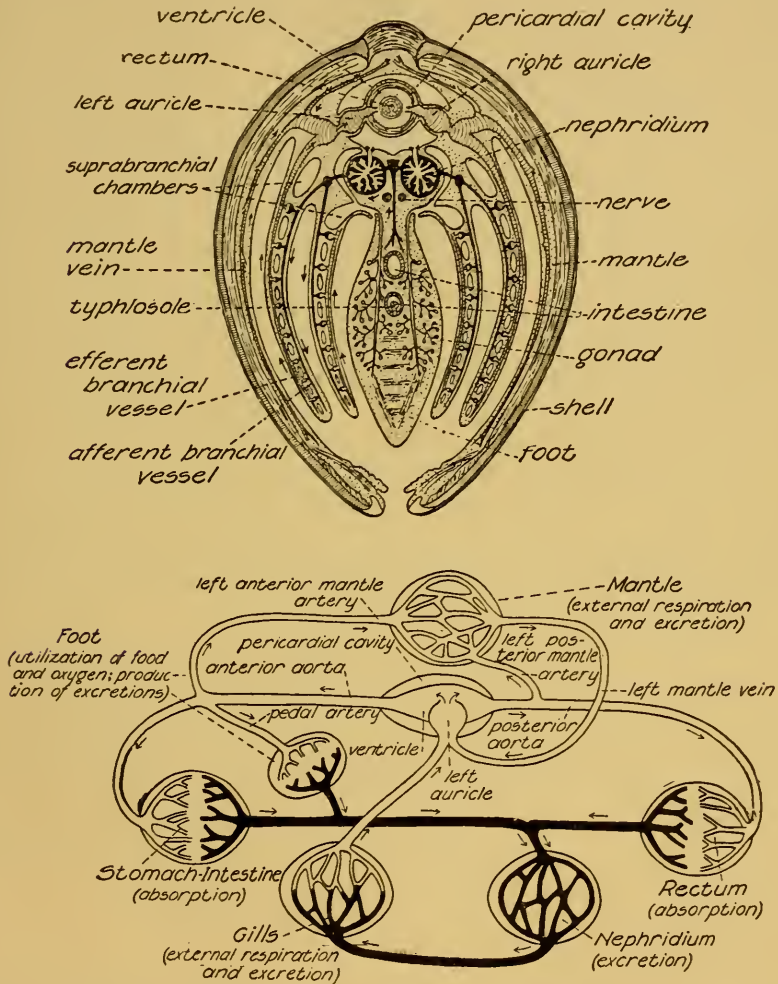 ventricle
pericardial cavity
rectum
right auricle
left auricle
nephridium
suprabranchial
chambers
nerve
mantle
vein
mantle
typhlosole
intestine
gonad
efferent
branchial
vessel
shell
afferent branchial
vessel
foot
left anterior mantle
artery
Mantle
(external respiration
and excretion)
Foot
(utilization of food
and oxygen; produc-
tion of excretions)
pericardial cavity
left pos-
terior mantle
artery
anterior aorta
left mantle vein
pedal artery
ventricle
posterior
aorta
left
auricle
Stomach-Intestine
(absorption)
Rectum
(absorption)
Gills
(external respiration
and excretion)
Nephridium
(excretion)